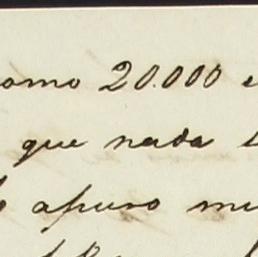 como 20.000 e
que nada
apuro mu